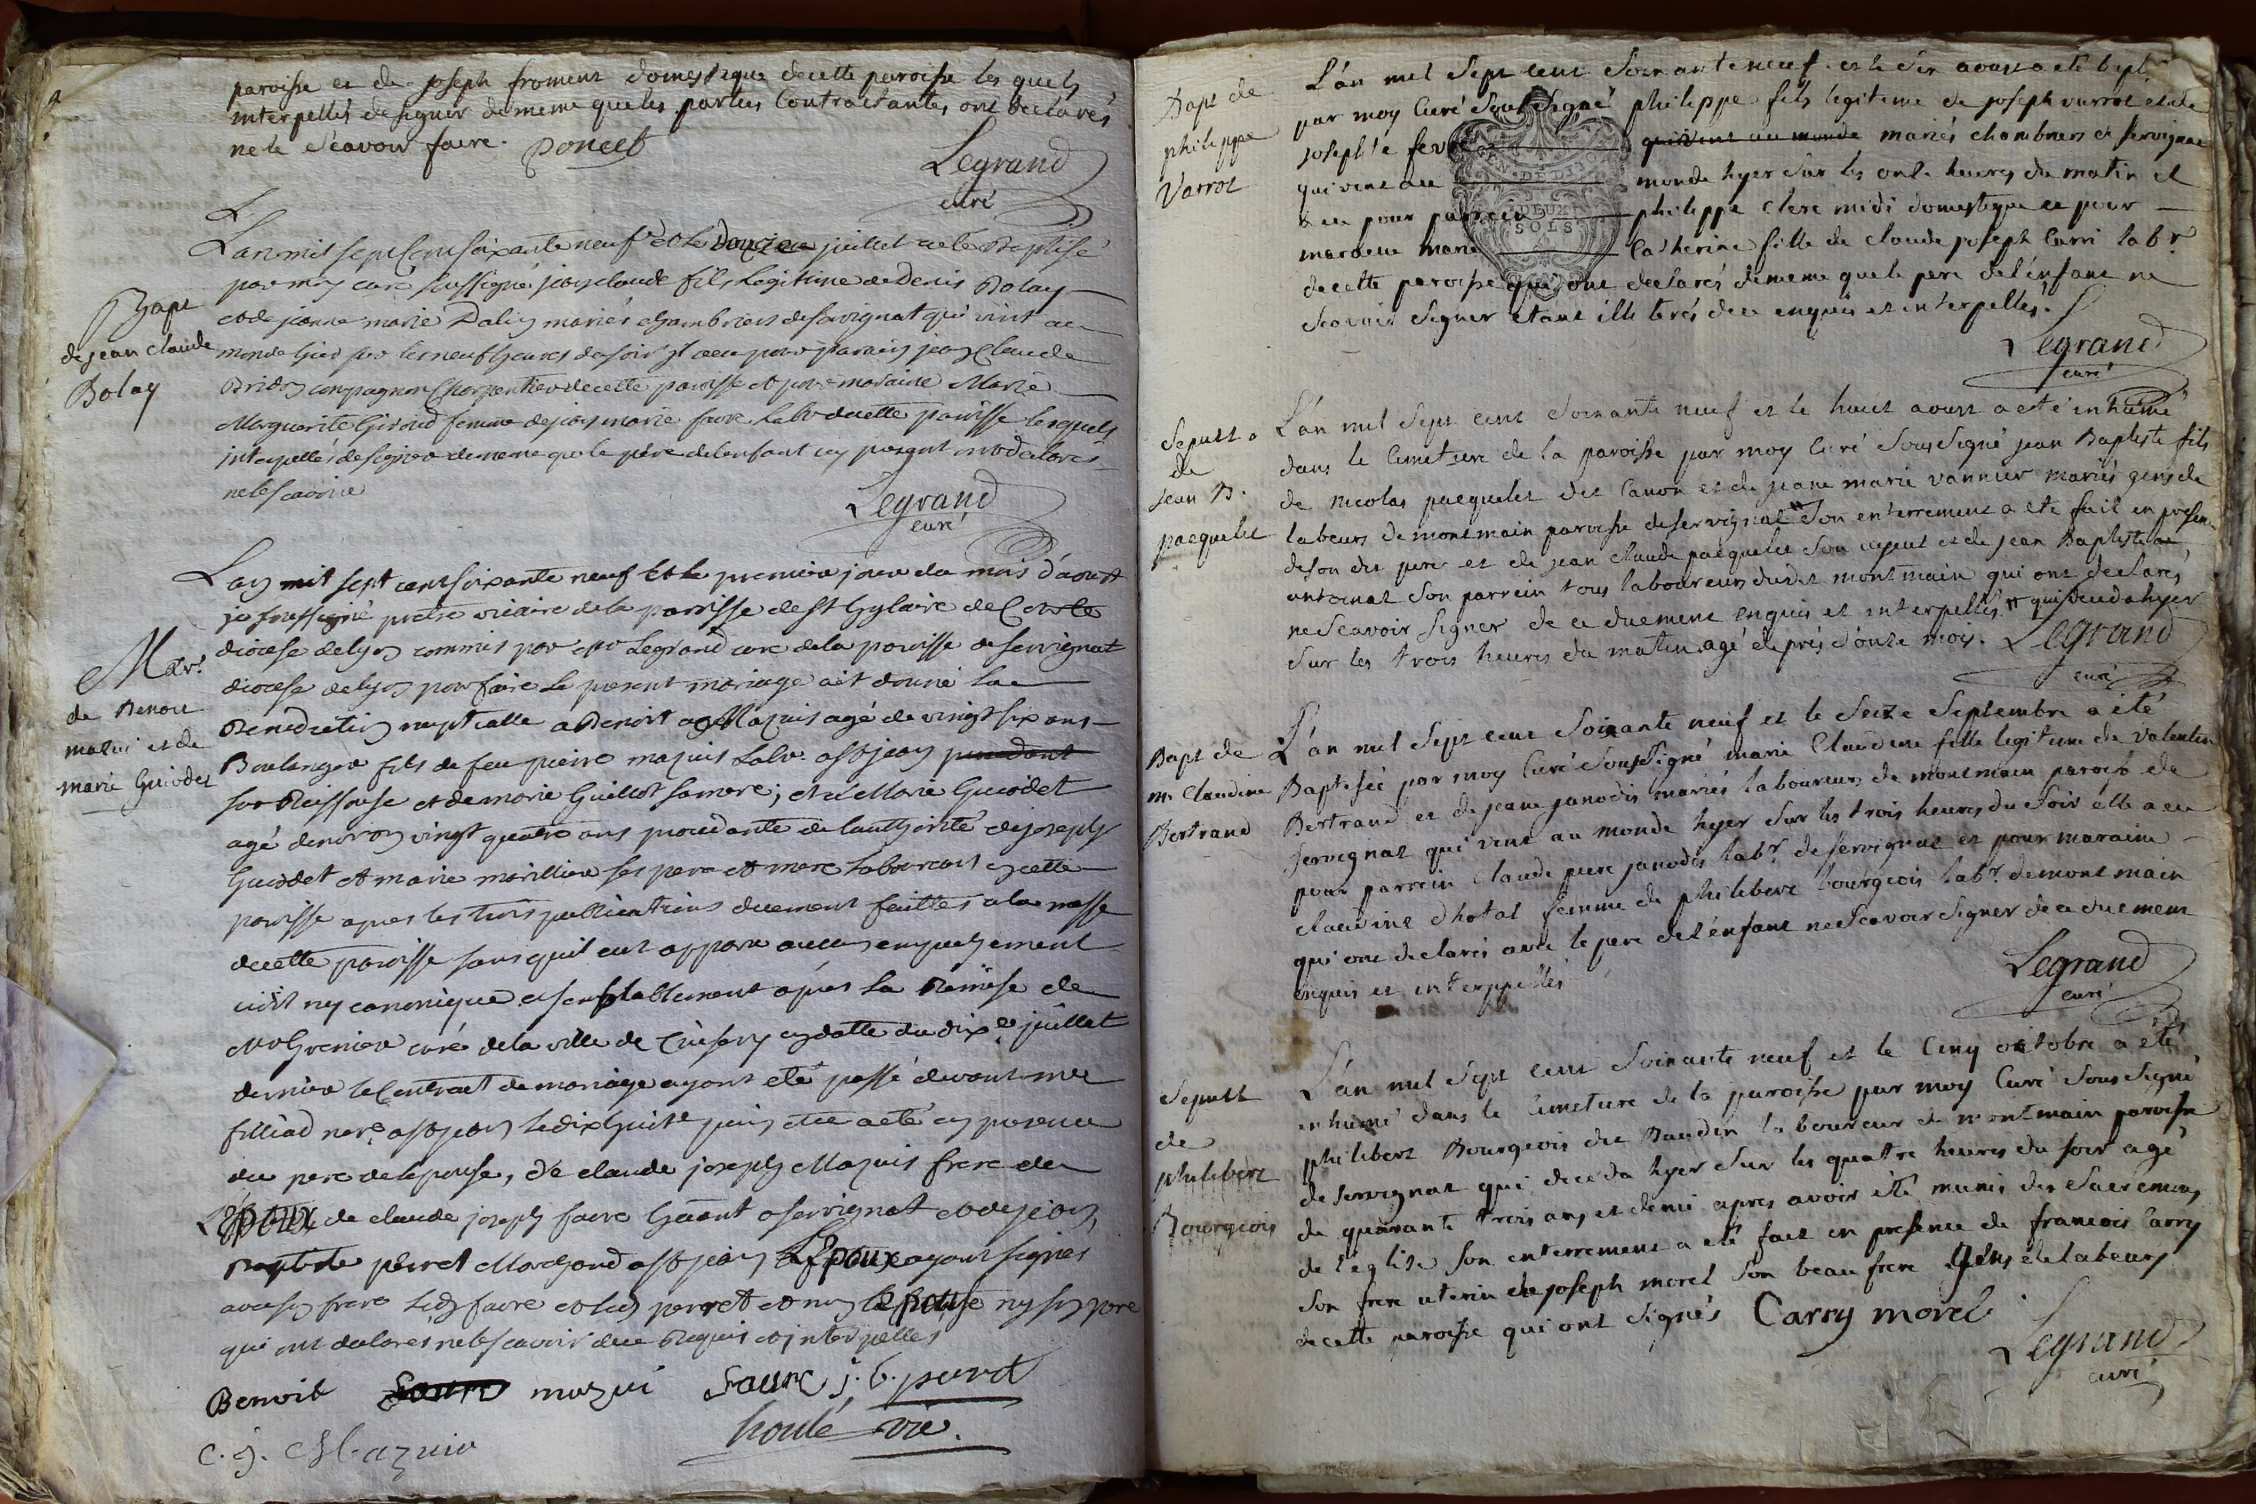 paroisse et de joseph froment domestique de cette paroisse les quels
interpellés de signer de meme que les parties Contractantes ont declarés
ne le scavoir faire. poncet
Legrand
curé
L'an mil sept Cent soixante neuf et le douzieme juillet a eté Baptisé
par moy curé soussigné jean claude fils Legitime de Denis Bolay
et de jeanne marie Dalin mariés chambriers de servignat qui vint au
monde hier sur les neuf heures du soir il a eu pour parain jean Claude
compagnon Charpentier de cette paroisse et pour maraine Marie
Marguerite Giroud femme de jean marie favre Labr de cette paroisse lesquels
interpellés de signer de meme que le père de l'enfant cy present ont declarés
ne le scavoir
Bapt
de jean claude
Bolay
Legrand
curé
L'an mil sept cent soixante neuf et le premier jour du mois d'aoust
je soussigné pretre vicaire de la paroisse de St hylaire de
diocese de lyon commis par Mr Legrand curé de la paroisse de servignat
diocese de lyon pour faire le present mariage ait donné la
Benediction nuptialle a Benoit Mazuis agé de vingt six ans
Boulanger fils de feu pierre mazuis Labr. a St jean
sur Reissouse et de marie Guillot sa mere; et a Marie Guiodet
agé denviron vingt quatre ans procedante de l'authorité de joseph
Guiodet et marie morillier ses pere et mere laboureurs en cette
paroisse apres les trois publications duement faittes a la messe
de cette paroisse sans qu'il eut apparu aucun empechement
civil ny canonique et semblablement après la Remise de
Mr Grenier curé de la ville de Cuisery en datte du dixe juillet
dernier le Contract de mariage ayant eté passé devant me
filliad nore a St jean le dix huite juin et ce a eté en presence
du pere de l'epouse, de claude joseph Mazuis frere de
L'époux de claude joseph favre Geant a servignat et de jean
Baptiste perret Marchand a St jean L'Epoux ayant signes
avec son frere ledt favre et ledt perret et non l'epouse ny son pere
qui ont declarés ne le scavoir de ce Requis et interpellés
Mar.
de Benoit
mazui et de
marie Guiodet
Benoit mazui faure j. b. peret
C. j. Mazuir
houlé vic.
Bapt de
philippe
Varrot
L'an mil sept cent soixante neuf et le six aoust a eté bapt.
par moy Curé soussigné philippe fils legitime de joseph varrot et de
josephte fevre qui vint au monde mariés chambriers de servignat
qui vint au monde hyer sur les onze heures du matin il
a eu pour parrein philippe clerc midi domestique et pour
mareine marie Catherine fille de claude joseph Carri labr
de cette paroisse qui ont declarés de meme que le pere de l'enfant ne
scavoir signer etant illiterés de ce enquis et interpellés.
DEUX
SOLS
Legrand
curé
Sepult
de
jean B.
pacquelet
L'an mil sept cent soixante neuf et le huit aoust a eté inhumé
dans le Cimetiere de la paroisse par moy Curé soussigné jean Baptiste fils
de nicolas pacquelet dit Canon et de jeane marie vannier mariés gens de
labeurs de montmain paroisse de servignat son enterrement a eté fait en presence
de son dit pere et de jean claude pacquelet son ayeul et de jean Baptiste
antoinat son parrein tous laboureurs dudit montmain qui ont declarés
ne scavoir signer de ce duement enquis et interpellés qui deceda hyer
sur les trois heures du matin agé de près d'onze mois. Legrand
curé
Bapt de
m. Claudine
Bertrand
L'an mil sept cent soixante neuf et le seize septembre a été
Baptisée par moy Curé soussigné marie Claudine fille legitime de valentin
Bertrand et de jeane janodis mariés laboureurs de montmain paroisse de
servignat qui vint au monde hyer sur les trois heures du soir elle a eu
pour parrein claude piere janodis labr de servignat et pour maraine
claudine dhotal femme de philibert bourgeois labr. de montmain
qui ont declarés avec le pere de l'énfant ne scavoir signer de ce duement
enquis et interppellés
Legrand
curé
Sepult
de
philibert
Bourgeois
L'an mil sept cent soixante neuf et le Cinq octobre a eté
inhumé dans le Cimetiere de la paroisse par moy Curé soussigné
philibert Bourgeois dit Baudin laboureur de montmain paroisse
de servignat qui deceda hyer sur les quatre heures du soir agé
de quarante trois ans et demi apres avoir été munis des sacremens
de l'église son enterrement a eté fait en presence de francois Carry
son frere uterin de joseph morel son beau frere gens de labeurs
de cette paroisse qui ont signés Carry morel
Legrand
curé